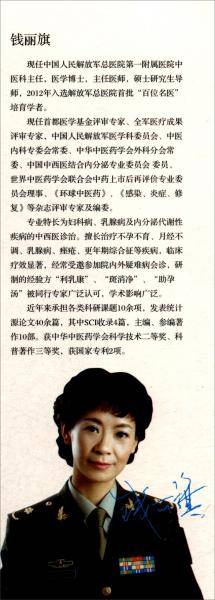 钱丽旗
现任中国人民解放军总医院第一附属医院中
医科主任，医学博士，主任医师，硕士研究生导
师，2012年入选解放军总医院首批“百位名医”
培育学者。
现任首都医学基金评审专家、全军医疗成果
评审专家，中国人民解放军医学科委员会、中医
内科专委会常委、中华中医药学会外科分会常
委、中国中西医结合内分泌专业委员会 委员、
世界中医药学会联合会中药上市后再评价专业委
员会理事、《环球中医药》、《感染、炎症、修
复》等杂志评审专家及编委。
专业特长为妇科病、乳腺病及内分泌代谢性
疾病的中西医诊治。擅长治疗不孕不育、月经不
调、乳腺病、痤疮、更年期综合征等疾病，临床
疗效显著，经常受邀参加院内外疑难病会诊，研
制的经验方“利乳康”、“斑消净”、“助孕
汤”被同行专家广泛认可，学术影响广泛。
近年来承担各类科研课题10余项，发表统计
源论文40余篇，其中SCI收录4篇，主编、参编著
作10部。获中华中医药学会科学技术二等奖、科
普著作三等奖，获国家专利2项。
钱丽旗